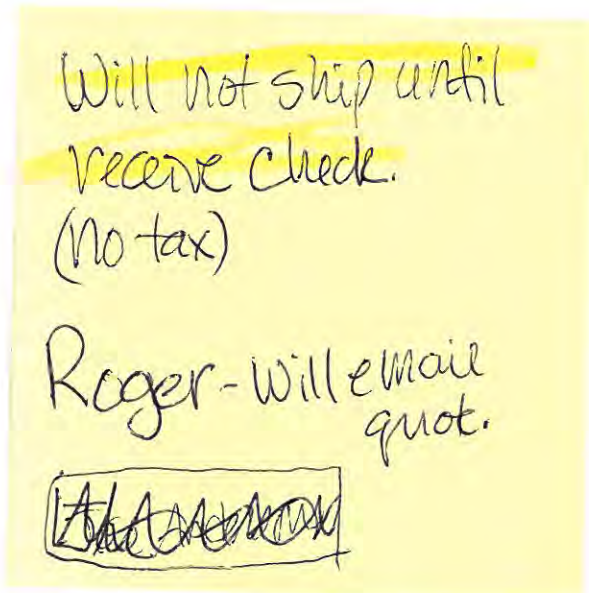 Will not ship until
receive check.
(no tax)
Roger - will email
quot.